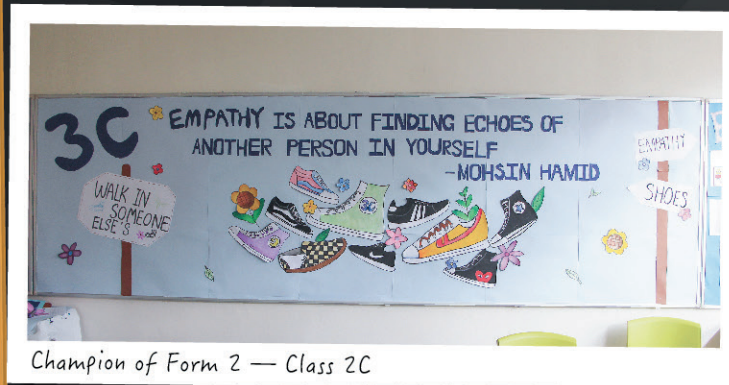 3C
EMPATHY IS ABOUT FINDING ECHOES OF
ANOTHER PERSON IN YOURSELF
-MOHSIN HAMID
WALK IN
SOMEONE
ELSE'S
EMPATHY
SHOES
Champion of Form 2 — Class 2C